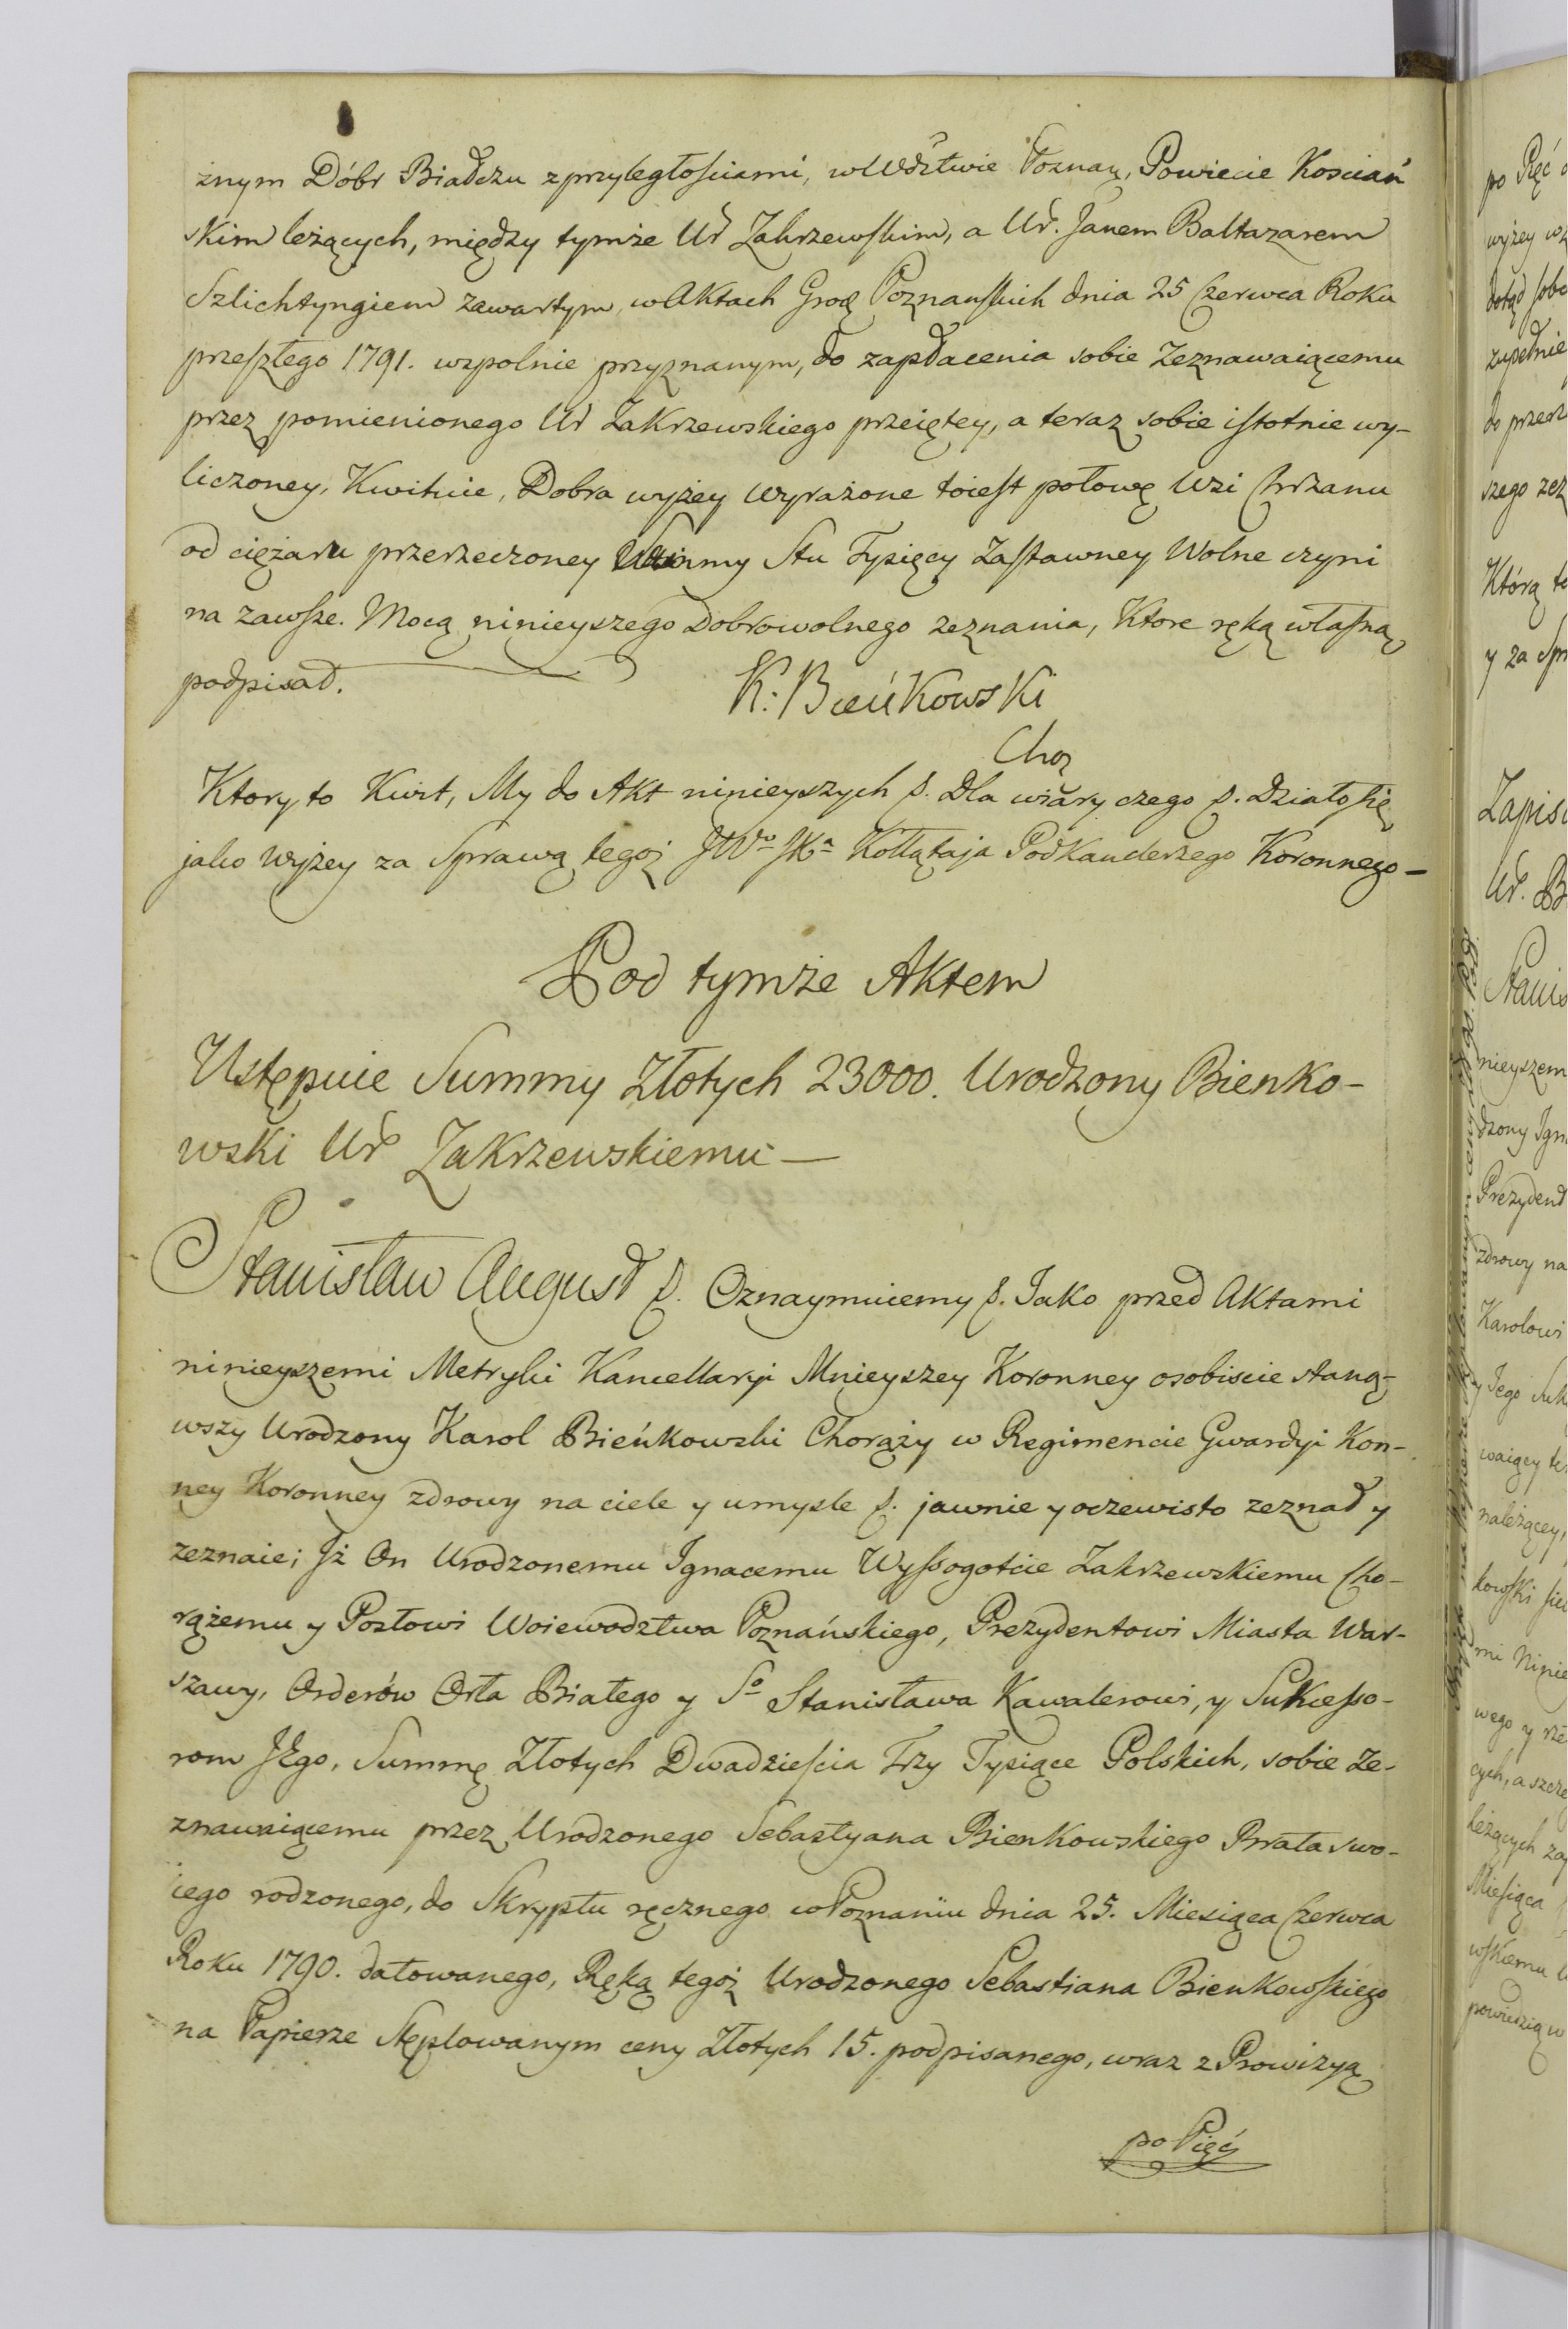 żnym Dóbr Biadczu z przyległościami, w Wdztwie Poznań, Powiecie Kościań
skim leżących, między tymże Ur Zakrzewskim, a Ur. Janem Baltazarem
Szlichtyngiem zawartym, w Aktach Grod Poznanskich dnia 25 Czerwca Roku
przeszłego 1791. wzpolnie przyznanym, do zapłacenia sobie Zeznawaiącemu
przez pomienionego Ur Zakrzewskiego przeiętey, a teraz sobie istotnie wy-
liczoney, Kwituie, Dobra wyżey wyrażone toiest połowę Wsi Chrzanu
od ciężaru przerzeczoney Summy Stu Tysięcy Zastawney Wolne czyni
na zawsze. Mocą ninieyszego Dobrowolnego zeznania, Ktore ręką własną
podpisał.
K: Bieńkowski
Chor
Ktory to Kwit, My do Akt ninieyszych p. Dla wiary czego p. Działo się
jako wyżey za Sprawą tegoż JWo JKa Kołłątaja Podkanclerzego Koronnego-
Pod tymże Aktem
Ustępuie Summy Złotych 23000. Urodzony Bienko-
wski Ur Zakrzewskiemu-
Stanisław August p. Oznaymuiemy p. Jako przed Aktami
ninieyszemi Metryki Kancellaryi Mnieyszey Koronney osobiscie staną-
wszy Urodzony Karol Bieńkowski Chorąży w Regimencie Gwardyi Kon-
ney Koronney zdrowy na ciele y umysle p. jawnie y oczewisto zeznał y
zeznaie; Jż On Urodzonemu Ignacemu Wyssogotcie Zakrzewskiemu Cho-
rążemu y Posłowi Woiewodztwa Poznańskiego, Prezydentowi Miasta War-
szawy, Orderów Orła Białego y So Stanisława Kawalerowi, y Sukcesso-
rom JEgo, Summę Złotych Dwadzieścia Trzy Tysiące Polskich, sobie Ze-
znawaiącemu przez Urodzonego Sebastyana Bienkowskiego Brata swo-
iego rodzonego, do Skryptu ręcznego w Poznaniu dnia 25. Miesiąca Czerwca
Roku 1790. datowanego, Ręką tegoż Urodzonego Sebastiana Bienkowskiego
na Papierze Stęplowanym ceny Złotych 15. podpisanego, wraz z Prowizyą
po Pięć